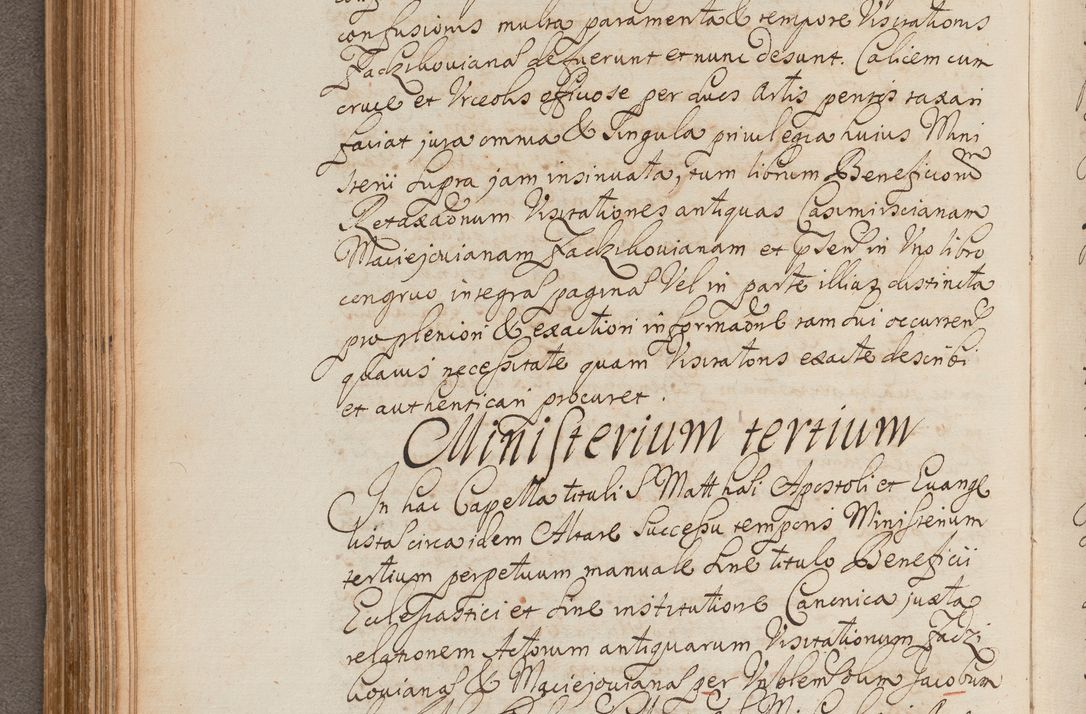 confusionis multa paramenta & tempore Visitationis
Fadzikoviana defuerunt et nunc desunt. Calicem cum
cruce et Urceolis efficiose per duos Artis peritos taxari
faciat jura omnia & singula privilegia huius Mini
sterii supra jam insinuata, tum librum Beneficiorum
Retaxaõnum Visitationes antiquas Casimirscianam
Maciejovianam Fadzikovianam et pñtem in Uno libro
congruo integras paginas Vel in parte illius distincta
pro pleniori & exactiori informaõne tam sui occurrente
quavis necessitate quam Visitatoris exacte describi
et authenticari procuret.
Ministerium tertium
In hac Capella tituli S Matthæi Apostoli et Evange
listæ circa idem Altare successu temporis Ministerium
tertium perpetuum manuale sine titulo Beneficii
Ecclesiastici et sine institutione Canonica juxta
relationem Actorum antiquarum Visitationum Fadzi
koviana & Maciejoviana per Nobilem Dnum Jacobum